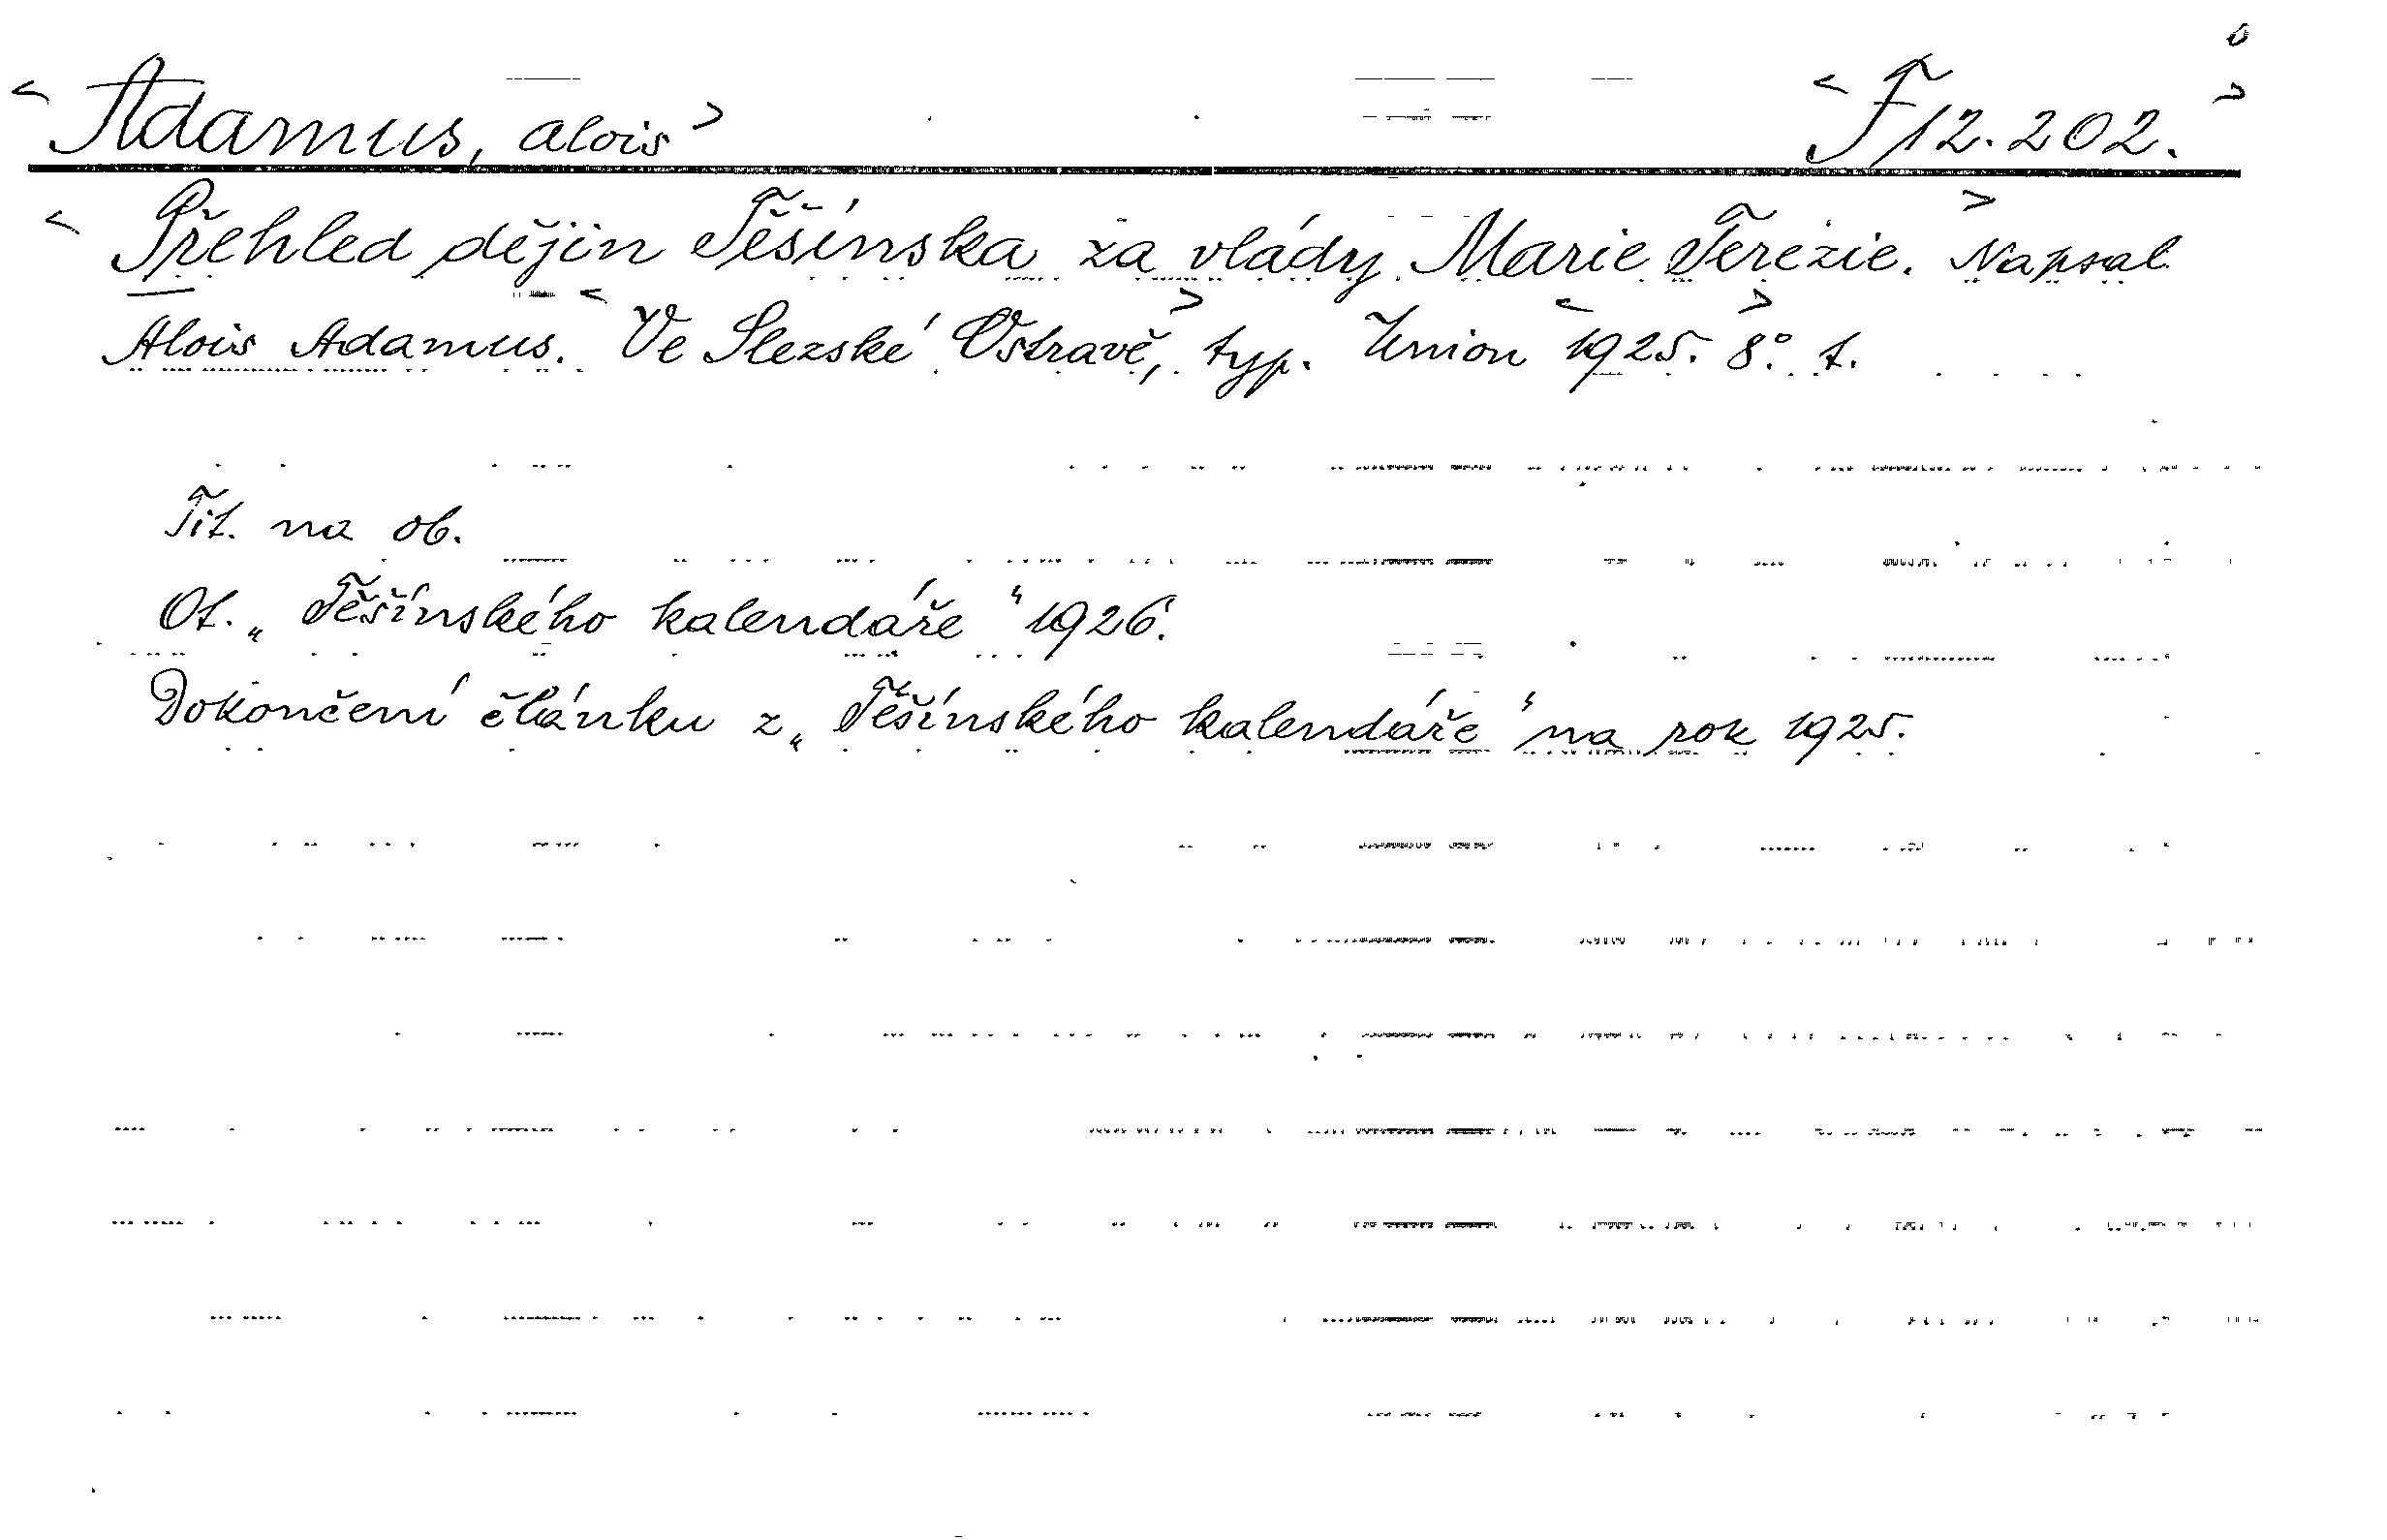 < Adamus, Alois > < F 12.202. >
< Přehled dějin Těšínska za vlády Marie Terezie. > Napsal
Alois Adamus. < Ve Slezské Ostravě, > typ. Union < 1925. > 8°. t.
Tit. na ob.
Ot. „Těšínského kalendáře“ 1926.
Dokončení článku z „Těšínského kalendáře“ na rok 1925.